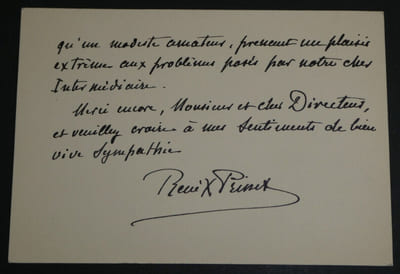 qu'un modeste amateur, prenant un plaisir
extrême aux problèmes posés par notre cher
Intermédiaire.
Merci encore, Monsieur et cher Directeur,
et veuillez croire à mes sentiments de bien
vive sympathie
René X Prinet